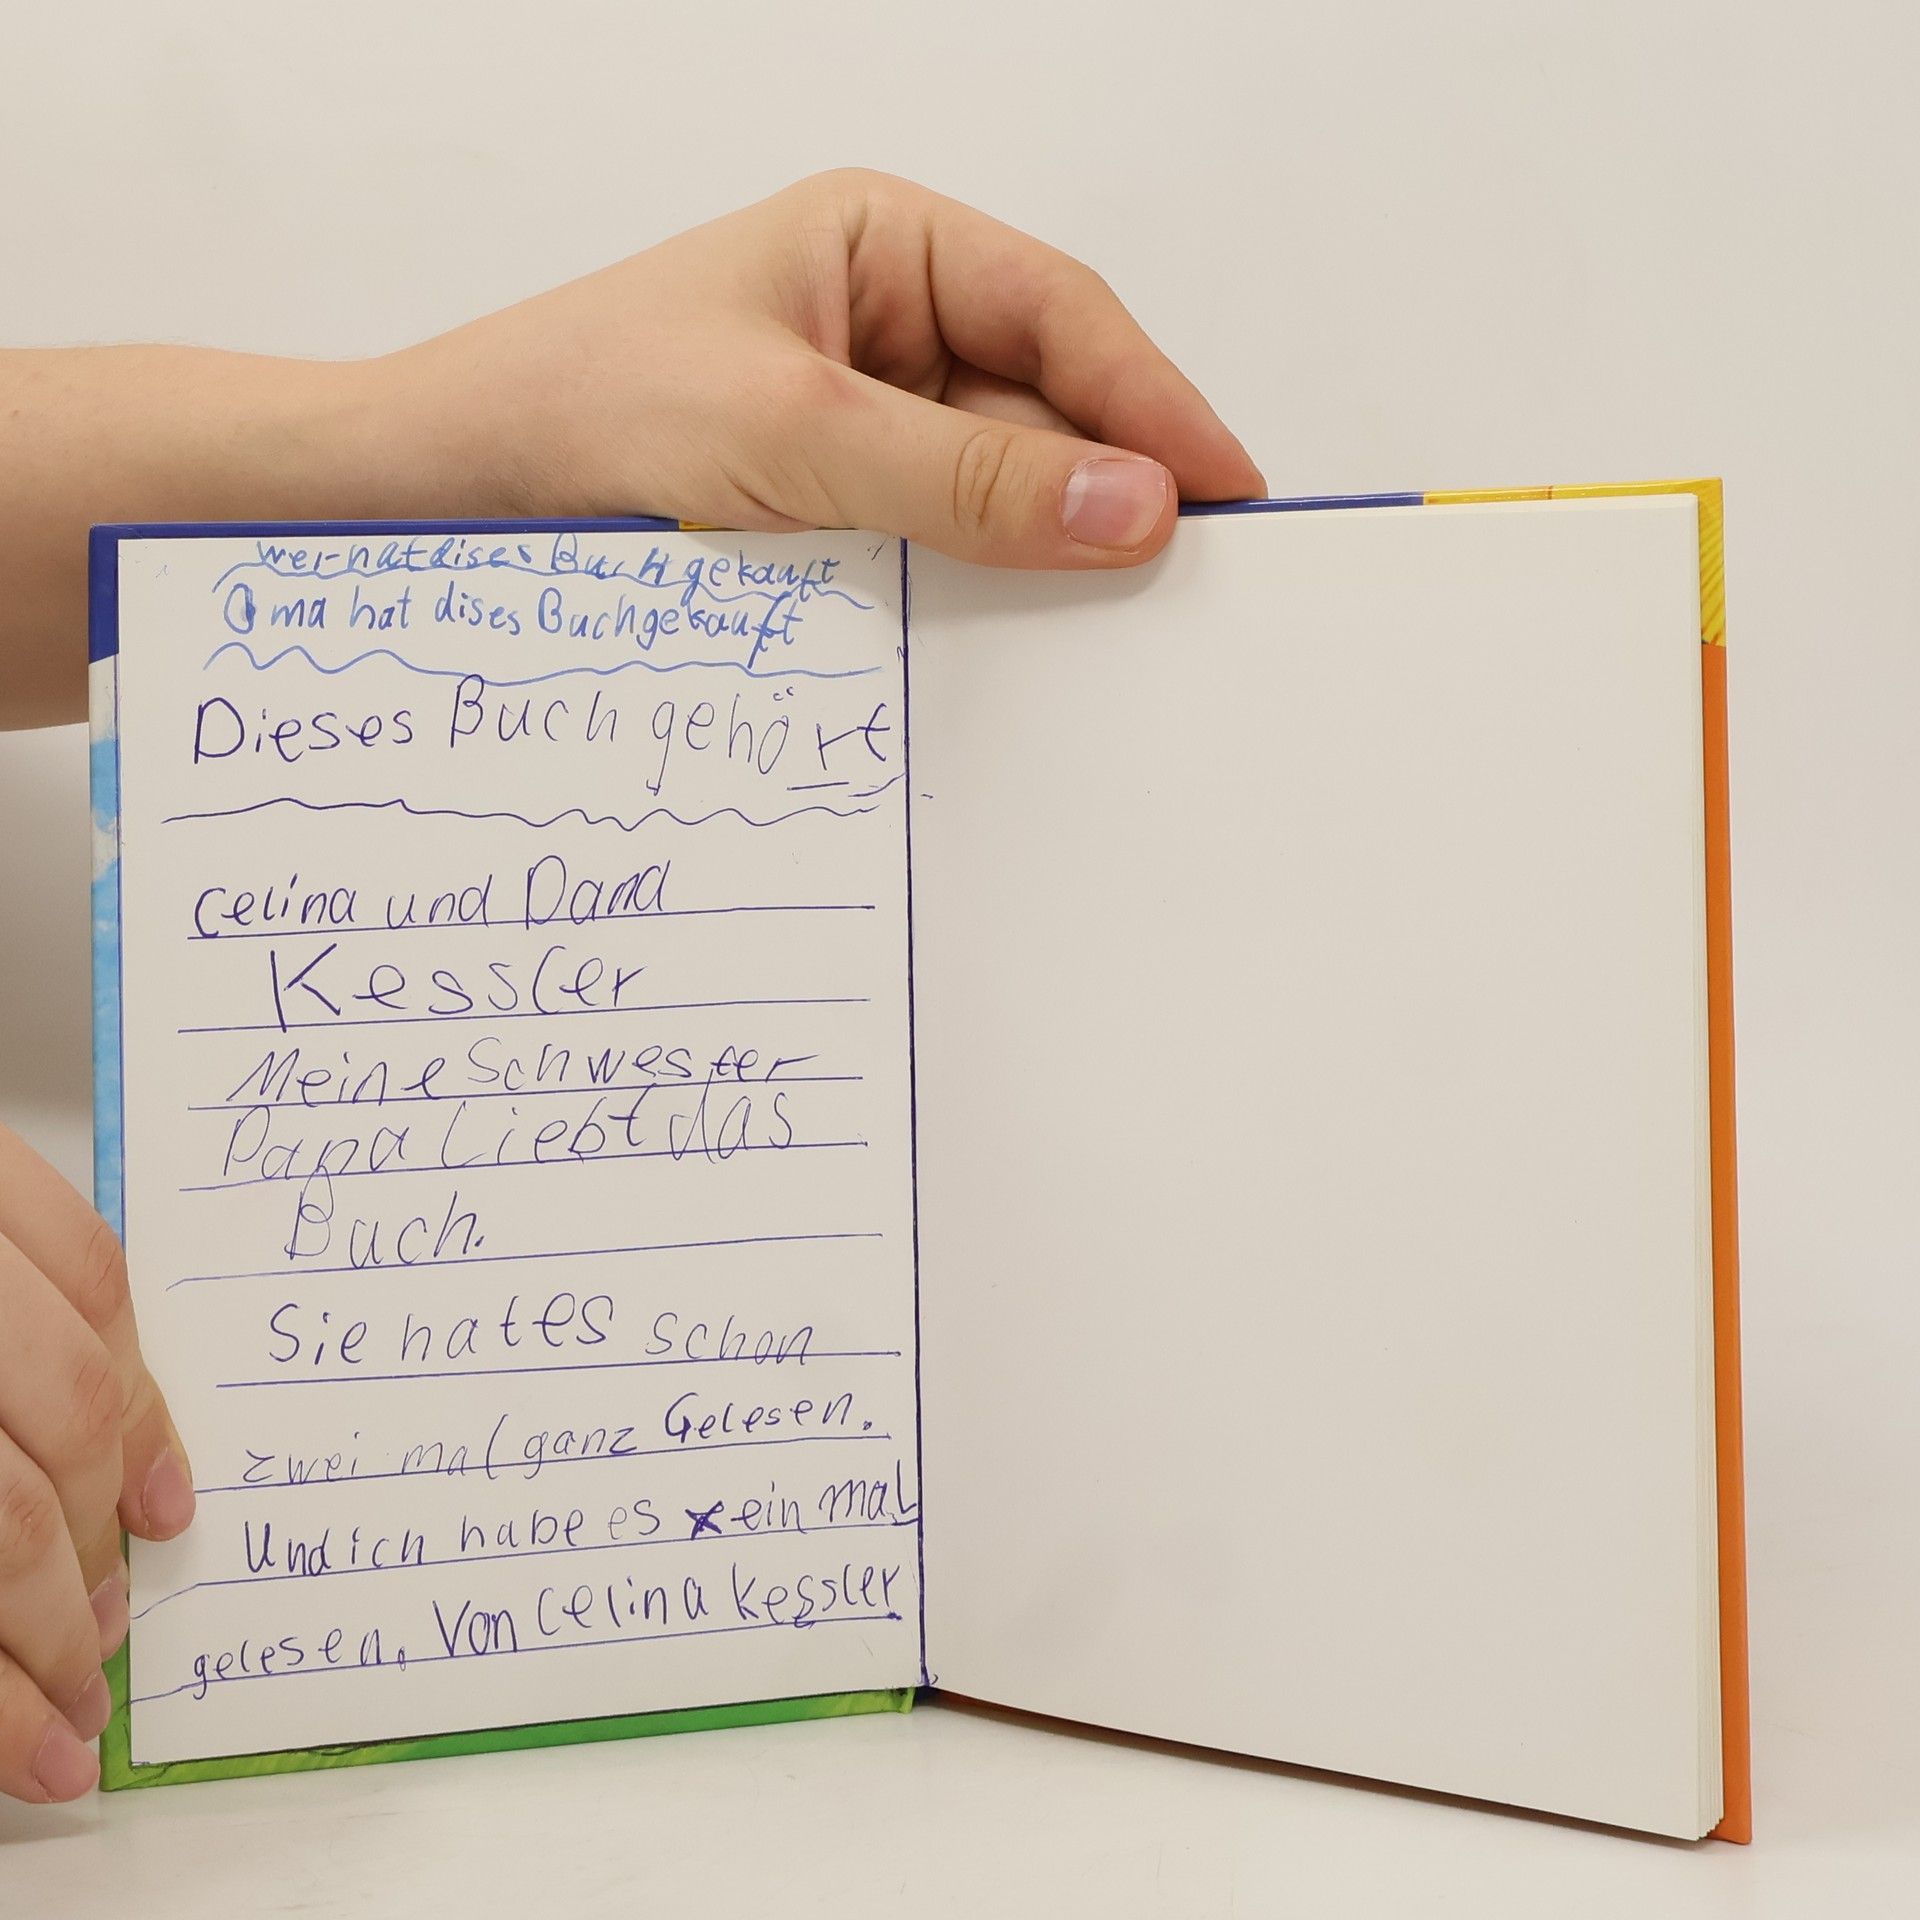 wer hat dises Buch gekauft
Oma hat dises Buch gekauft
Dieses Buch gehört
Celina und Dana
Kessler
Meine Schwester
Papa Liebt das
Buch.
Sie hat es schon
zwei mal ganz Gelesen.
Und ich habe es ein mal
gelesen. Von Celina Kessler